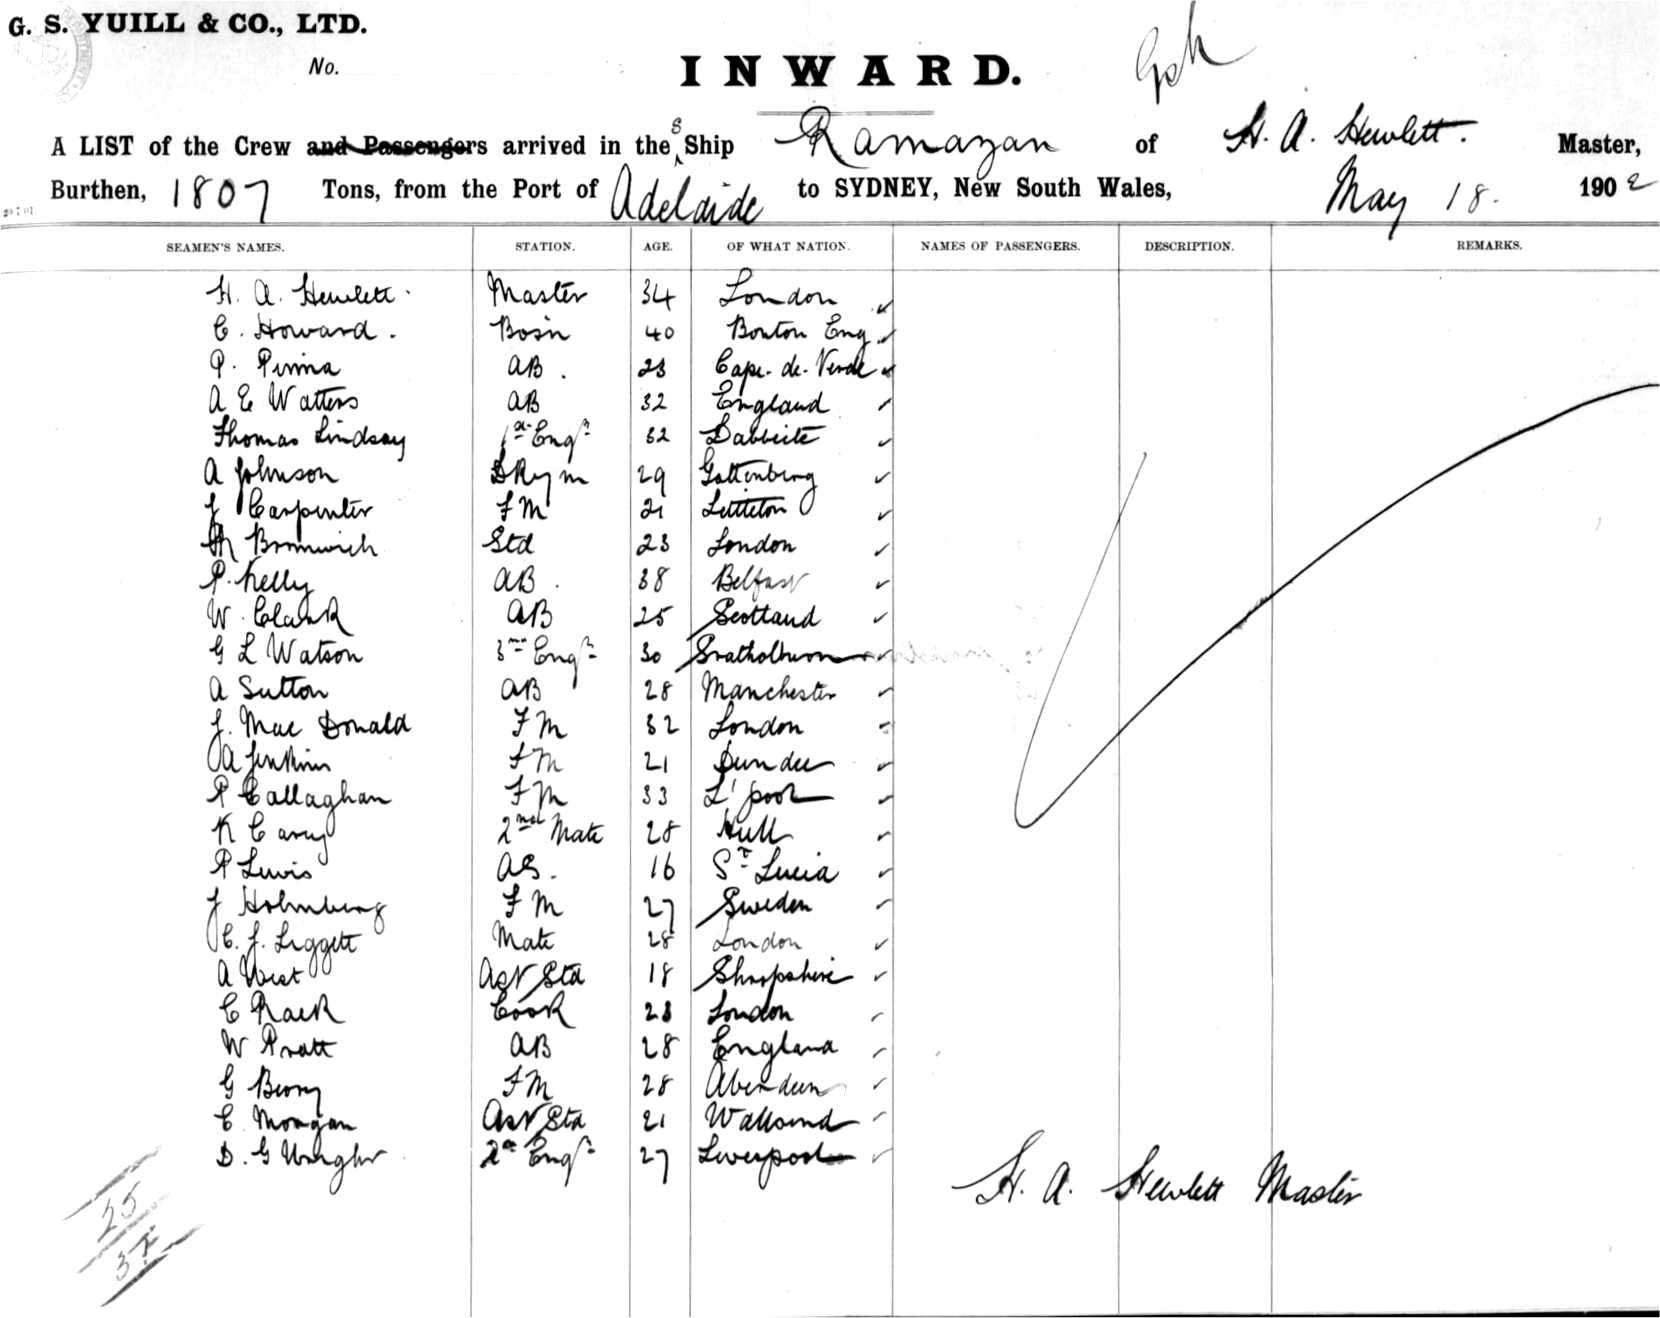 G. S. YUILL & CO., LTD.
No.
INWARD.
A LIST of the Crew and Passengers arrived in the S Ship Ramazan of H. A. Hewlett. Master,
Burthen, 1807 Tons, from the Port of Adelaide to SYDNEY, New South Wales, May 18. 1902
SEAMEN'S NAMES. STATION. AGE. OF WHAT NATION. NAMES OF PASSENGERS. DESCRIPTION. REMARKS.
H. A. Hewlett. Master 34 London
C. Howard. Bosn 40 Boston Eng
P. Pinna AB. 23 Cape-de-Verde
A E Watters AB 32 England
Thomas Lindsay 1st Engr 32
A Johnson DKym 29 Gottenberg
J Carpenter FM 21 Littleton
Bromwich Std 23 London
P. Kelly AB. 38 Belfast
W. Clark AB 25 Scotland
G L Watson 3rd Engr 30
A Sutton AB 28 Manchester
J. Mac Donald FM 32 London
A Jenkins FM 21 Dundee
P Callaghan FM 33 L'pool
K Carey 2nd Mate 28 Hull
P Lewis OS. 16 St Lucia
J Holmberg FM 27 Sweden
C. J. Liggett Mate 28 London
A West Ast Std 18 Shropshire
C Rack Cook 28 London
W Pratt AB 28 England
G Berry FM 28 Aberdeen
C. Morgan Ast Std 21 Wallsend
D. G Wright 2nd Engr 27 Liverpool
H. A. Hewlett Master
25